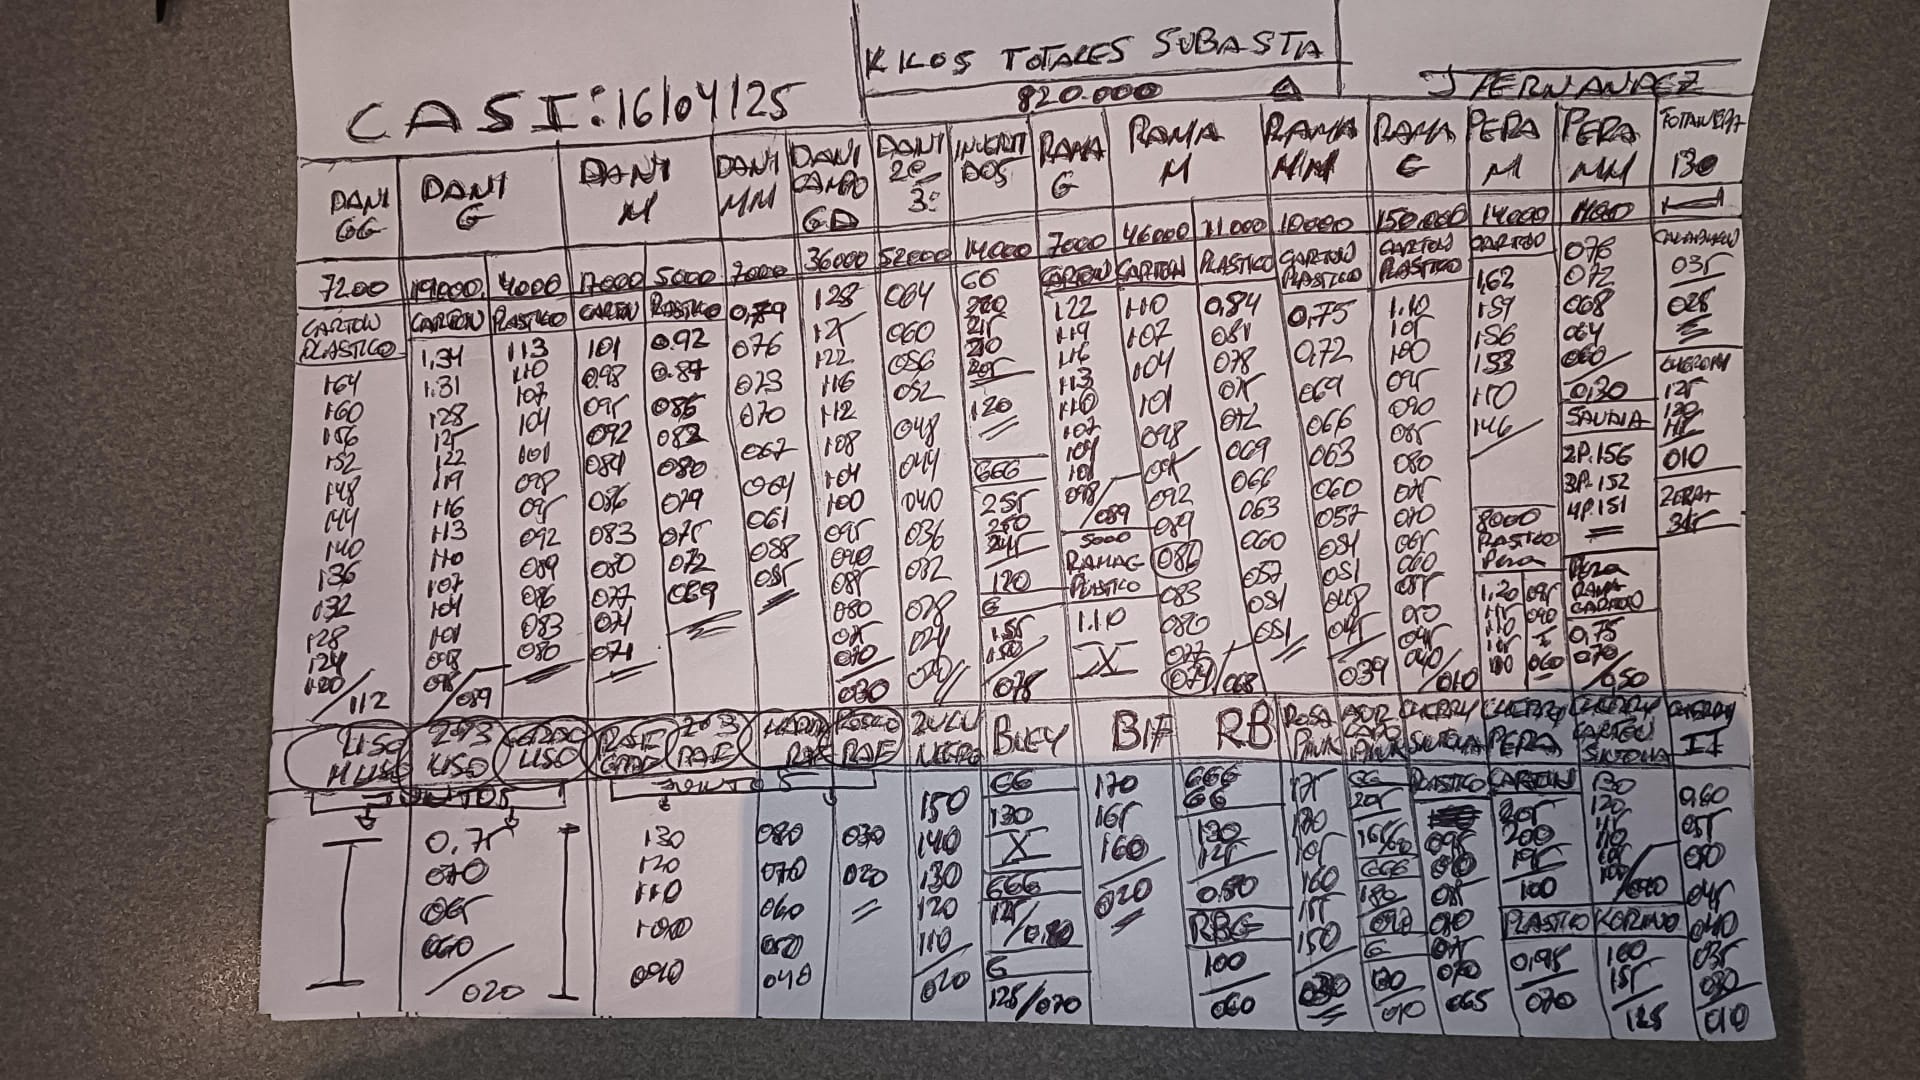 KILOS TOTALES SUBASTA
820.000
CASI: 16/04/25
J FERNANDEZ
DANI GG
DANI G
DANI M
DANI MM
DANI CAMPO GD
DANI 2ª 3ª
INVERTIDOS
RAMA G
RAMA M
RAMA MM
RAMA
PERA M
PERA MM
130
7200 19000 4000 17000 5000 7000 36000 52000 14000 7000 46000 11000 10000 150.000 14000
CARTON PLASTICO
164
160
156
152
148
144
140
136
132
128
124
120/112
CARTON
1,34
1.31
128
125
122
119
116
113
110
107
104
101
098
095/089
PLASTICO
113
110
107
104
101
098
095
092
089
086
083
080
CARTON
101
098
095
092
089
086
083
080
077
074
071
PLASTICO
0.92
0.89
086
083
080
079
075
072
069
0,79
076
073
070
067
064
061
058
055
128
125
122
116
112
108
104
100
095
090
085
080
075
070
030
064
060
056
052
048
044
040
036
032
028
024
020
60
220
215
210
205
120
GGG
255
250
245
120
G
155
150
075
CARTON
122
119
116
113
110
107
104
101
098/089
5000
RAMA G
PLASTICO
1.10
X
CARTON
110
107
104
101
098
095
092
089
086
083
080
077
074/068
PLASTICO
0,84
081
078
075
072
069
066
063
060
057
054
051
CARTON PLASTICO
0,75
0,72
069
066
063
060
057
054
051
048
045
039
CARTON PLASTICO
1.10
105
100
095
090
085
080
075
070
065
060
055
050
045
040/010
CARTON
1,62
159
156
153
150
146
8000
PLASTICO
Pera
1,20 095
115 090
110 X
105 060
100
076
072
068
064
060
0,30
SAUNIA
2P.156
3P.152
4P.151
Pera
RAMA
CARTON
0,75
070
/050
035
025
125
120
115
010
ZEBRA+
315
LISO M LISO
2º3 LISO
CERDO LISO
RAF GRAF
2º3 RAF
RAF
ROSCO RAF
ZULU NEGRO
BUEY
BIF
RB
ROSA PINK
PINK
CHERRY SINTONA
CHERRY PERA
CHERRY CARTON SINTONA
CHERRY II
JUNTOS
JUNTOS
0,75
070
065
060
/020
130
120
110
100
090
080
070
060
050
040
030
020
150
140
130
120
110
020
GG
130
X
GGG
125/0.80
G
125/070
170
165
160
020
GGG
GG
130
125
0.80
RBG
100
060
175
170
165
160
155
150
030
GG
205
GGG
180
090
G
130
010
PLASTICO
095
090
085
080
075
070
065
CARTON
205
200
195
100
PLASTICO
0,95
070
130
120
110
105
100/090
KORINO
160
155
125
0,60
055
050
045
040
035
030
010